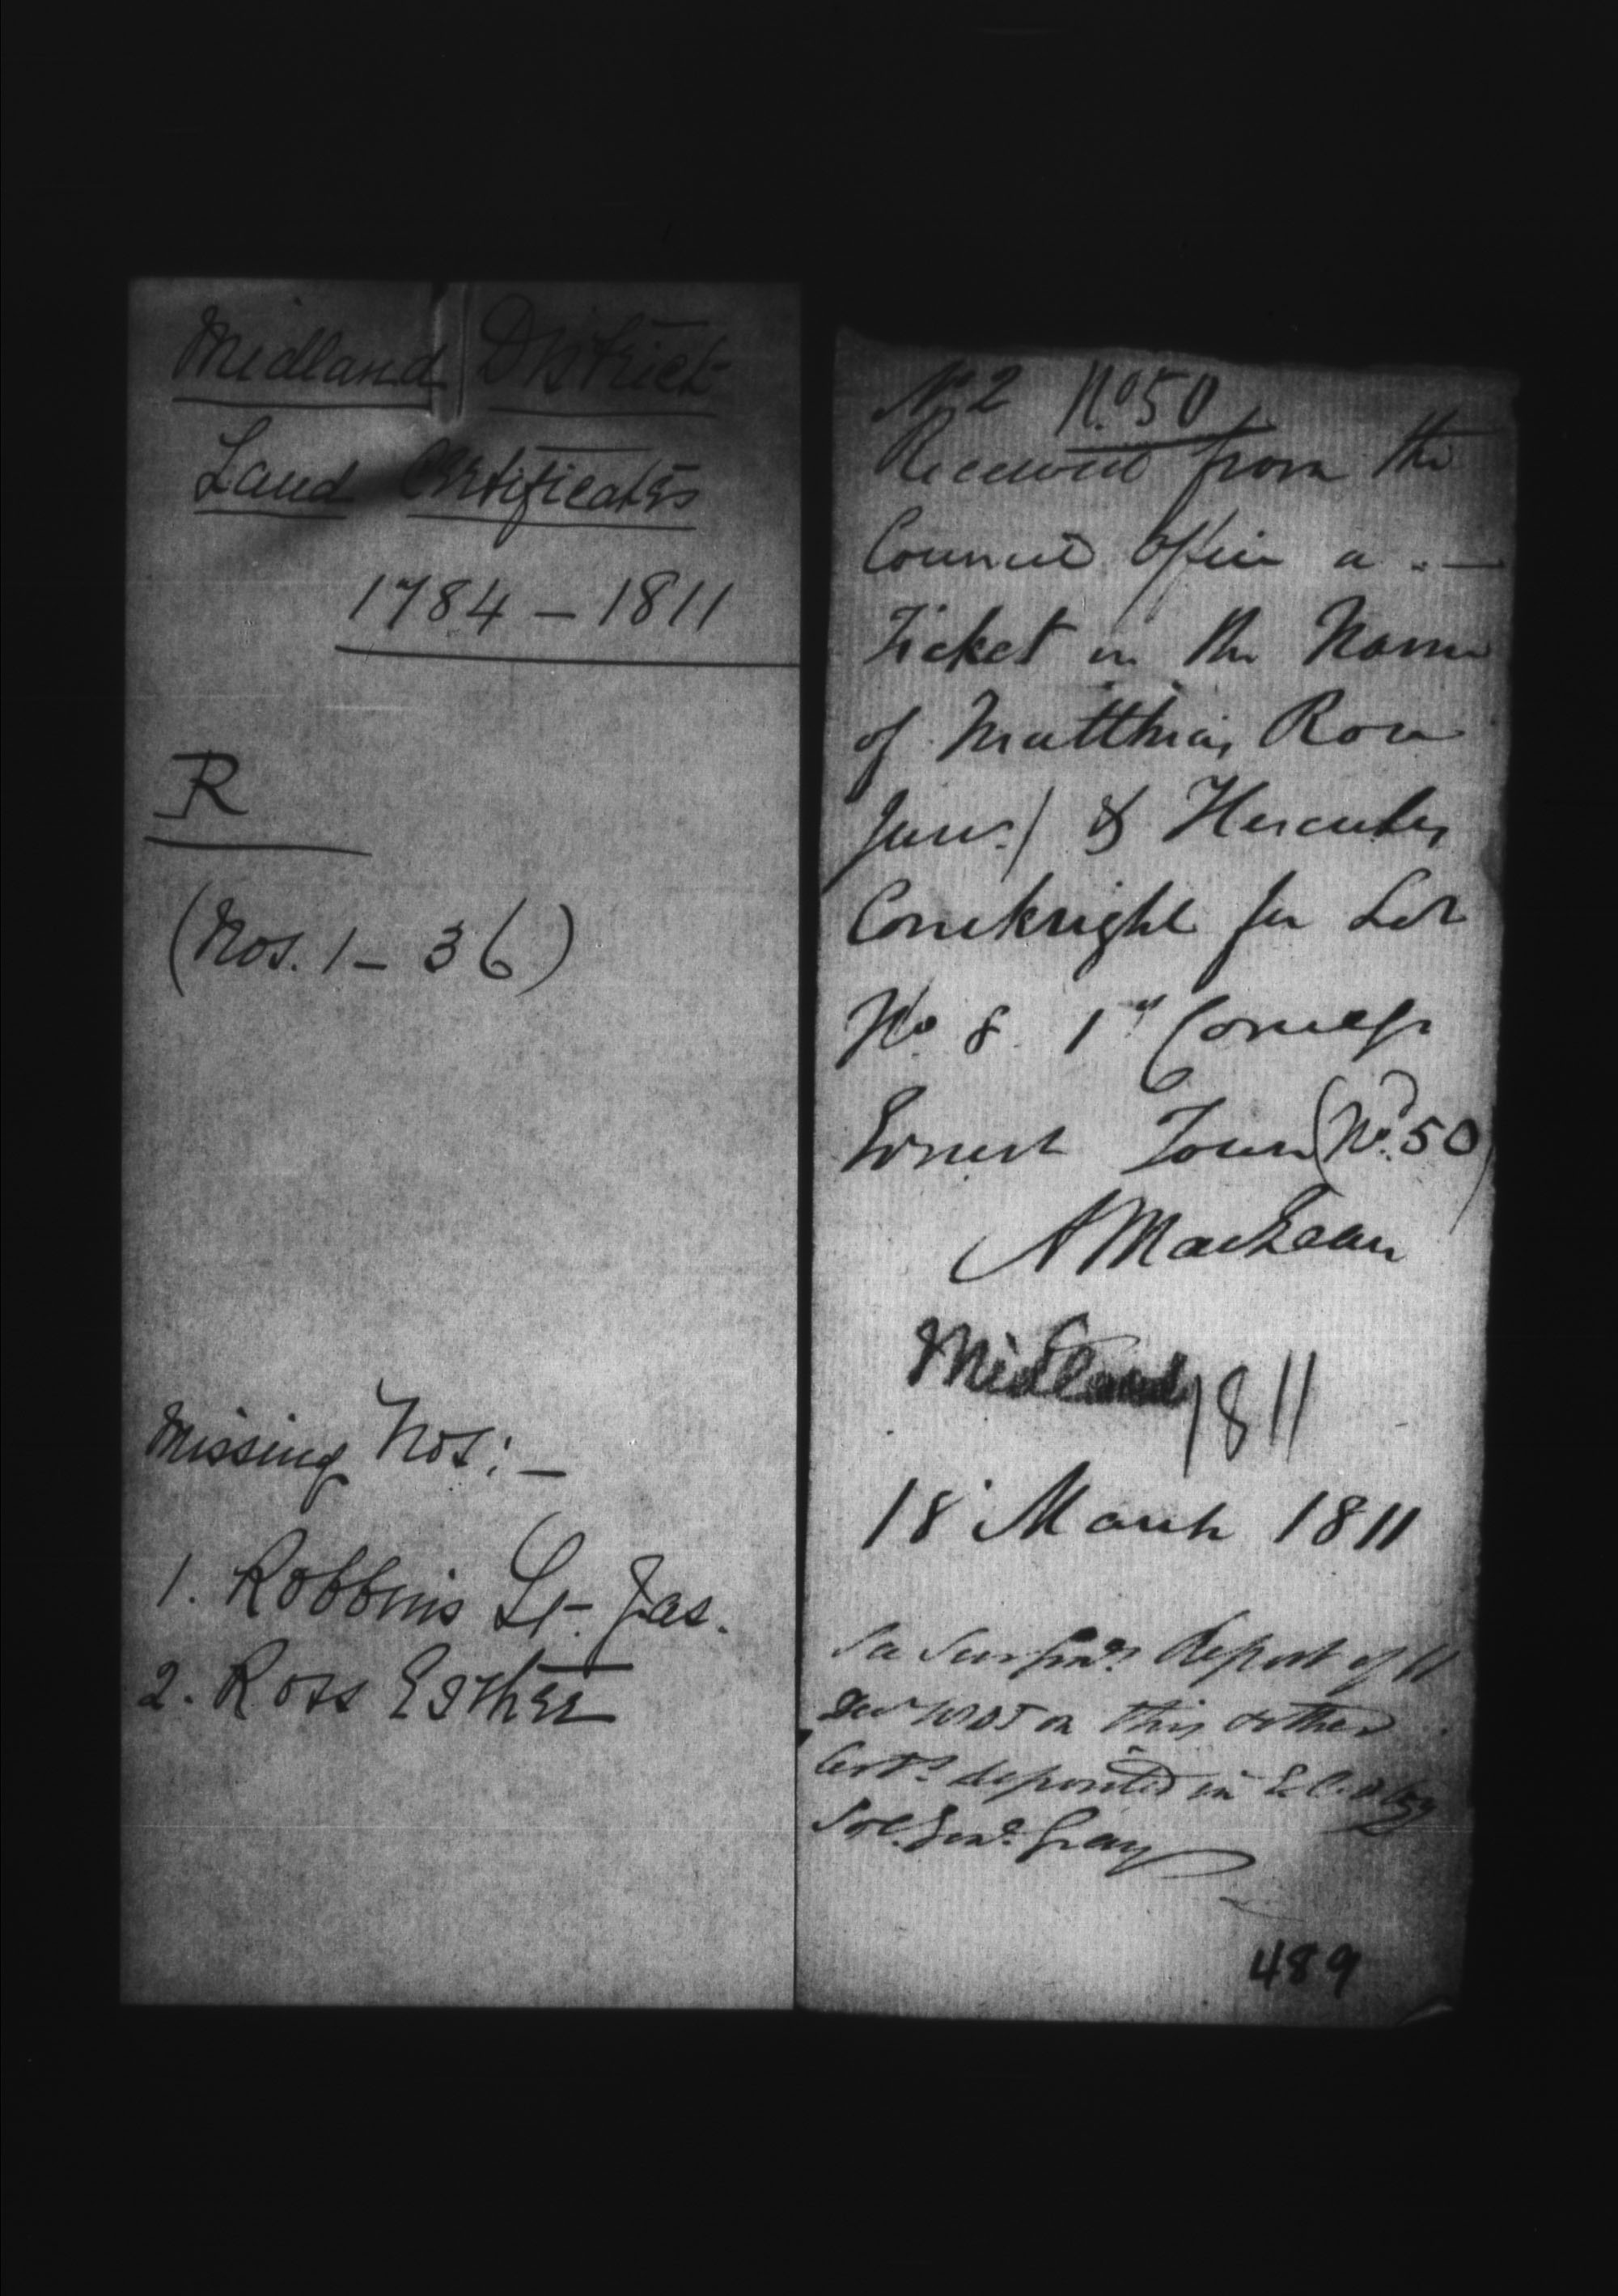 Midland District
Land Certificates
1784 – 1811
R
(Nos. 1 – 36)
Missing Nos: –
1. Robbins Lt. Jas.
2. Ross Esther
No 2 No 50
Received from the
Council Office a . —
Ticket in the Name
of Matthias Rose
Junr.) & Hercules
Cornekright for Lot
No 8. 1st Concess
Ernest Town (No. 50)
A MacLean
Midland 1811
18 March 1811
Report of 11
1805 on this & other
Certs. deposited in
Sol. Genl. Gray
489